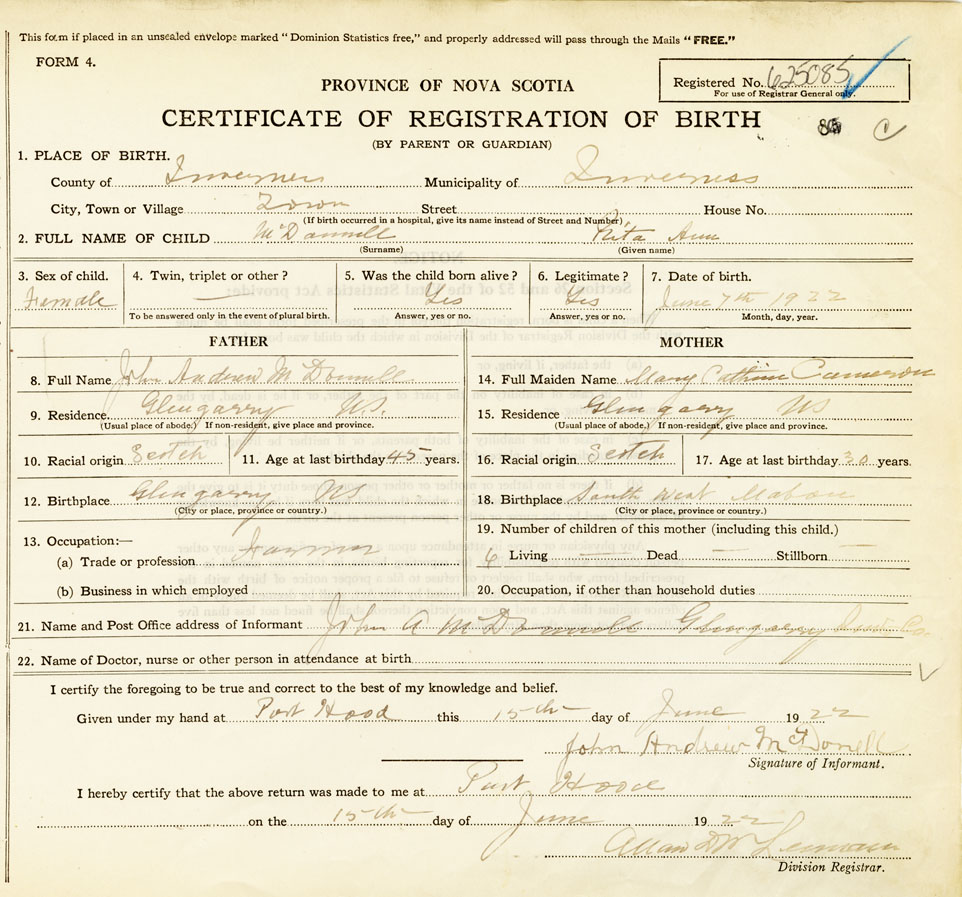 This form if placed in an unsealed envelope marked "Dominion Statistics free," and properly addressed will pass through the Mails "FREE."
FORM 4.
Registered No. 625085
For use of Registrar General only.
PROVINCE OF NOVA SCOTIA
CERTIFICATE OF REGISTRATION OF BIRTH
(BY PARENT OR GUARDIAN)
C
1. PLACE OF BIRTH.
County of Inverness Municipality of Inverness
City, Town or Village Street House No.
(If birth occurred in a hospital, give its name instead of Street and Number)
2. FULL NAME OF CHILD McDonnell Rita Ann
(Surname) (Given name)
3. Sex of child. 4. Twin, triplet or other? 5. Was the child born alive? 6. Legitimate? 7. Date of birth.
Female — Yes Yes June 7th 1922
To be answered only in the event of plural birth. Answer, yes or no. Answer, yes or no. Month, day, year.
FATHER MOTHER
8. Full Name John Andrew McDonnell 14. Full Maiden Name Mary Cathrine Cameron
9. Residence Glengarry NS. 15. Residence Glengarry NS
(Usual place of abode.) If non-resident, give place and province. (Usual place of abode.) If non-resident, give place and province.
10. Racial origin Scotch 11. Age at last birthday 45 years. 16. Racial origin Scotch 17. Age at last birthday 30 years.
12. Birthplace Glengarry NS 18. Birthplace South West Mabou
(City or place, province or country.) (City or place, province or country.)
13. Occupation:— 19. Number of children of this mother (including this child.)
(a) Trade or profession Farmer 6 Living — Dead — Stillborn —
(b) Business in which employed 20. Occupation, if other than household duties
21. Name and Post Office address of Informant John A McDonnell Glengarry Inv Co.
22. Name of Doctor, nurse or other person in attendance at birth
I certify the foregoing to be true and correct to the best of my knowledge and belief.
Given under my hand at Port Hood this 15th day of June 1922
John Andrew McDonell
Signature of Informant.
I hereby certify that the above return was made to me at Port Hood
on the 15th day of June 1922
Allan
Division Registrar.